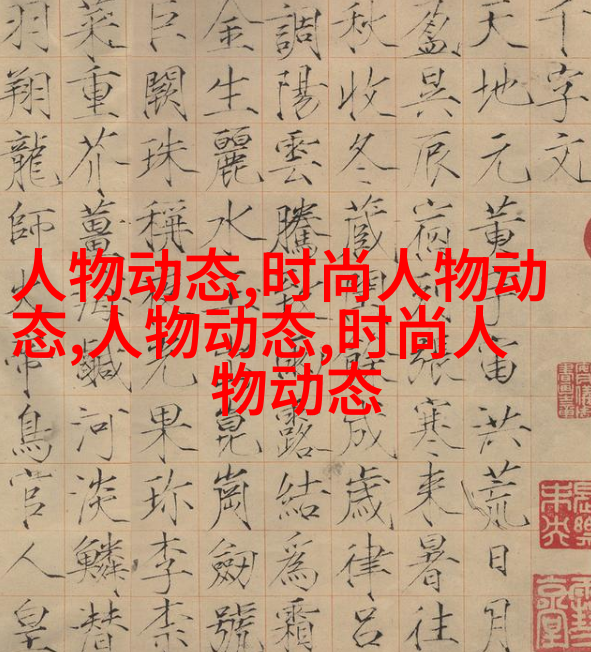 人物动态,时尚人物动
态,人物动态,时尚人
物动态
千字文
天地元黄宇宙洪荒日月
盈昃辰宿列張寒来暑往
秋收冬蔵閏餘成歳律呂
調陽雲騰致雨露結為霜
金生麗水玉出崑崗劒號
巨闕珠稱夜光果珍李柰
菜重芥薑海鹹河淡鱗潜
羽翔龍師火帝鳥官人皇